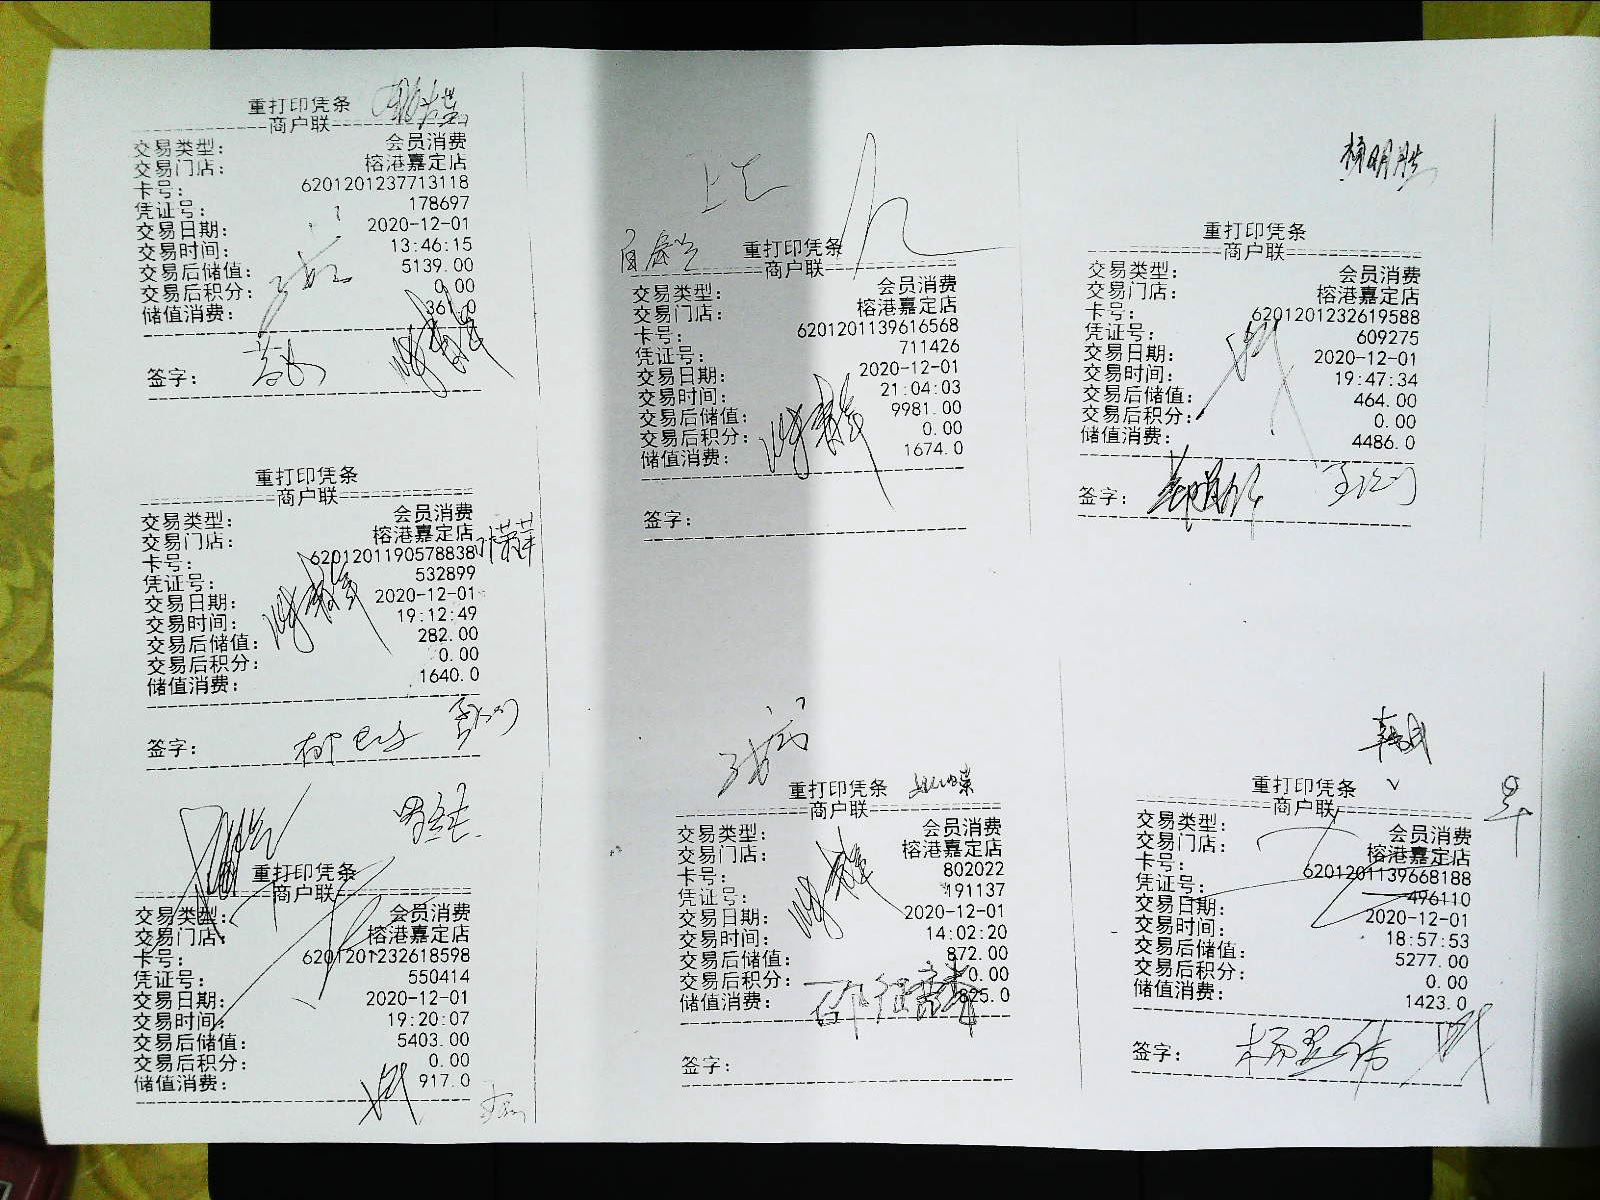 重打印凭条
商户联
交易类型: 会员消费
交易门店: 榕港嘉定店
卡号: 6201201237713118
凭证号: 178697
交易日期: 2020-12-01
交易时间: 13:46:15
交易后储值: 5139.00
交易后积分: 0.00
储值消费: 361.0
签字:
重打印凭条
商户联
交易类型: 会员消费
交易门店: 榕港嘉定店
卡号: 6201201190578838
凭证号: 532899
交易日期: 2020-12-01
交易时间: 19:12:49
交易后储值: 282.00
交易后积分: 0.00
储值消费: 1640.0
签字:
重打印凭条
商户联
交易类型: 会员消费
交易门店: 榕港嘉定店
卡号: 6201201232618598
凭证号: 550414
交易日期: 2020-12-01
交易时间: 19:20:07
交易后储值: 5403.00
交易后积分: 0.00
储值消费: 917.0
重打印凭条
商户联
交易类型: 会员消费
交易门店: 榕港嘉定店
卡号: 6201201139616568
凭证号: 711426
交易日期: 2020-12-01
交易时间: 21:04:03
交易后储值: 9981.00
交易后积分: 0.00
储值消费: 1674.0
签字:
重打印凭条
商户联
交易类型: 会员消费
交易门店: 榕港嘉定店
卡号: 802022
凭证号: 191137
交易日期: 2020-12-01
交易时间: 14:02:20
交易后储值: 872.00
交易后积分: 0.00
储值消费: 825.0
签字:
杨明胜
重打印凭条
商户联
交易类型: 会员消费
交易门店: 榕港嘉定店
卡号: 6201201232619588
凭证号: 609275
交易日期: 2020-12-01
交易时间: 19:47:34
交易后储值: 464.00
交易后积分: 0.00
储值消费: 4486.0
签字:
重打印凭条
商户联
交易类型: 会员消费
交易门店: 榕港嘉定店
卡号: 6201201139668188
凭证号: 496110
交易日期: 2020-12-01
交易时间: 18:57:53
交易后储值: 5277.00
交易后积分: 0.00
储值消费: 1423.0
签字: